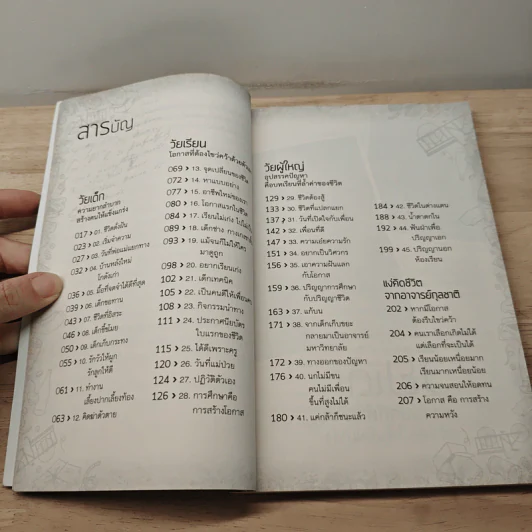 สารบัญ
วัยเด็ก
ความยากลำบาก
สร้างคนให้แข็งแกร่ง
017 > 01. ชีวิตดั่งฝัน
023 > 02. เริ่มจำความ
027 > 03. วันที่พ่อแม่แยกทาง
032 > 04. บ้านหลังใหม่
โกดังเก่า
036 > 05. มื้อที่จดจำได้ดีที่สุด
039 > 06. เด็กขอทาน
043 > 07. ชีวิตที่อิสระ
046 > 08. เด็กขี้ขโมย
050 > 09. เด็กเก็บกระทง
055 > 10. รักวัวให้ผูก
รักลูกให้ตี
061 > 11. ทำงาน
เลี้ยงปากเลี้ยงท้อง
063 > 12. คิดฆ่าตัวตาย
วัยเรียน
โอกาสที่ต้องไขว่คว้าด้วยตัวเอง
069 > 13. จุดเปลี่ยนของชีวิต
072 > 14. ทาแบบอย่าง
077 > 15. อาชีพใหม่ของเรา
080 > 16. โอกาสแรกในชีวิต
084 > 17. เรียนไม่เก่ง
089 > 18. เด็กช่าง
093 > 19. แม้จนก็ไม่ให้ใคร
มาดูถูก
098 > 20. อยากเรียนเก่ง
102 > 21. เด็กเทคนิค
105 > 22. เป็นคนดีให้เพื่อน
108 > 23. กิจกรรมนำทาง
111 > 24. ประกาศนียบัตร
ใบแรกของชีวิต
115 > 25. ได้ดีเพราะครู
120 > 26. วันที่แม่ป่วย
124 > 27. ปฏิวัติตัวเอง
126 > 28. การศึกษาคือ
การสร้างโอกาส
วัยผู้ใหญ่
อุปสรรคปัญหา
คือบทเรียนที่ล้ำค่าของชีวิต
129 > 29. ชีวิตต้องสู้
133 > 30. ชีวิตที่แปลกแยก
137 > 31. วันที่เปิดใจกับเพื่อน
142 > 32. เพื่อนที่ดี
147 > 33. ความเก่งความรัก
151 > 34. อยากเป็นวิศวกร
156 > 35. เอาความฝันแลก
กับโอกาส
159 > 36. ปริญญาการศึกษา
กับปริญญาชีวิต
163 > 37. แก๊บน
171 > 38. จากเด็กเก็บขยะ
กลายมาเป็นอาจารย์
มหาวิทยาลัย
172 > 39. ทางออกของปัญหา
176 > 40. นกไม่มีขน
คนไม่มีเพื่อน
ขึ้นที่สูงไม่ได้
180 > 41. แค่กล้าก็ชนะแล้ว
184 > 42. ชีวิตในต่างแดน
188 > 43. น้ำตาตกใน
192 > 44. ฟันฝ่าเพื่อ
ปริญญาเอก
199 > 45. ปริญญานอก
ห้องเรียน
แง่คิดชีวิต
จากอาจารย์กุลชาติ
202 > หากมีโอกาส
ต้องรีบไขว่คว้า
204 > คนเราเลือกเกิดไม่ได้
แต่เลือกที่จะเป็นได้
205 > เรียนน้อยเหนื่อยมาก
เรียนมากเหนื่อยน้อย
206 > ความจนสอนให้อดทน
207 > โอกาส คือ การสร้าง
ความหวัง